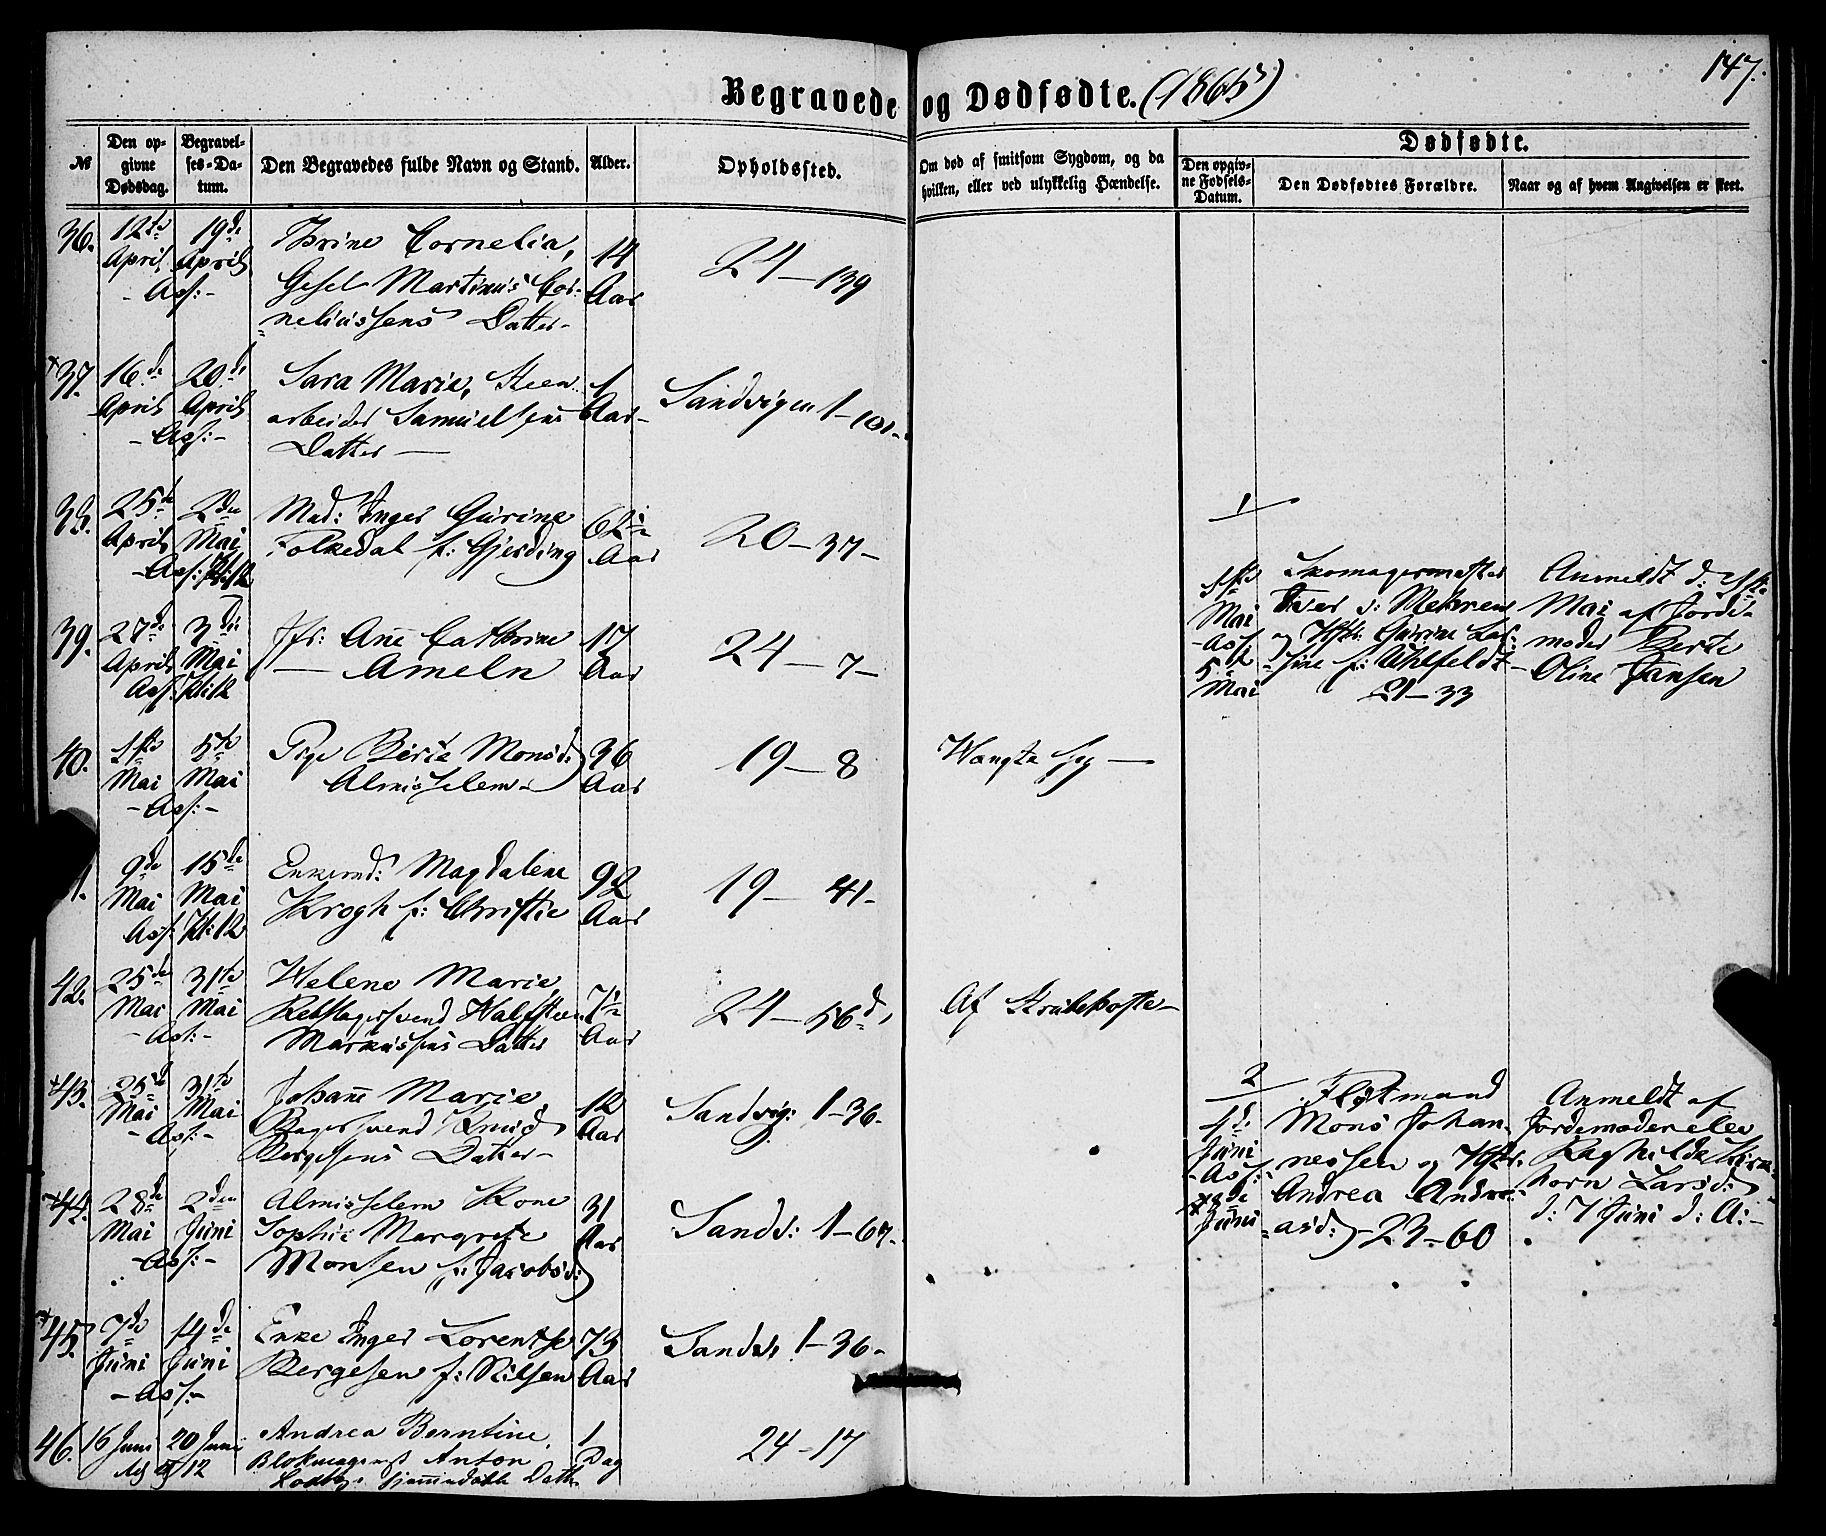 147.
Begravede og Dødfødte. (1865)
№
Den opgivne Dødsdag.
Begravelses-Datum.
Den Begravedes fulde Navn og Stand.
Alder.
Opholdssted.
Om død af smitsom Sygdom, og da hvilken, eller ved ulykkelig Hændelse.
Dødfødte.
Den opgivne Fødsels-Datum.
Den Dødfødtes Forældre.
Naar og af hvem Angivelsen er skeet.
36. 12te April 19de April
Thrine Cornelia, 14
Gesel Martinus Cor- Aar 24 – 139
- Ass: -
neliussens Datter -
37. 16de April 20de April
Sara Marie, Steen- 1 Aar
arbeider Samuelsens Sandvigen 1 – 101 -
- Ass: -
Datter —
38. 25de April 2den Mai
Mad: Inger Gurine 62½ Aar
Folkedal f: Gjerding 20 – 37 -
Ass: Kl: 12
39. 27de April 3die Mai
Jfr: Ane Cathrine 17 Aar
Ameln 24 – 7 -
Ass: Kl: 12
1
1ste Mai Ass 5te Mai
Skomagermester
Iver v: Mehren
og Hstr: Gurine
f: Uhlfeldt
21 – 33
Anmeldt d:
Mai af Jorde-
moder Berte
Oline Jansen
40. 1ste Mai 5te Mai
Pige Berte Monsd: 36 Aar
Almisselem - 19 – 8
- Ass: -
9de Mai 15de Mai
Enkemd: Magdalene 92 Aar
Krogh f: Christie 19 – 41 -
Ass: Kl: 12
42. 25de Mai 31te Mai
Helene Marie, 7½ Aar
Rebslagersvend 24 – 56d, Af Strubehoste -
- Ass: -
Markussens Datter
43. 25de Mai 31te Mai
Johane Marie, 12 Aar
Bagersvend Knud Sandvig: 1 – 36 -
- Ass: -
Bergesens Datter -
2
4de Juni Ass: Juni
Flotmand
Mons Johan-
nessen og Hstr:
Andrea Andre-
asd: – 23 – 60
Anmeldt af
Jordemoderelev
Raghilda
Larsd:
d: 7 Juni d: A: -
44. 28de Mai 2den Juni
Almisselem Kone 31 Aar
Sophie Margrete Sandv: 1 – 67 -
- Ass: -
Monsen f: Jacobsd:
45. 7de Juni 14de Juni
Enke Inger Lorentse 73 Aar
Bergesen f: Nilsen Sandv: 1 – 36 -
- Ass: -
46. 16 Juni 20 Juni
Andrea Berntine, 1 Dag
Blokmagermst Anton 24 – 17
12